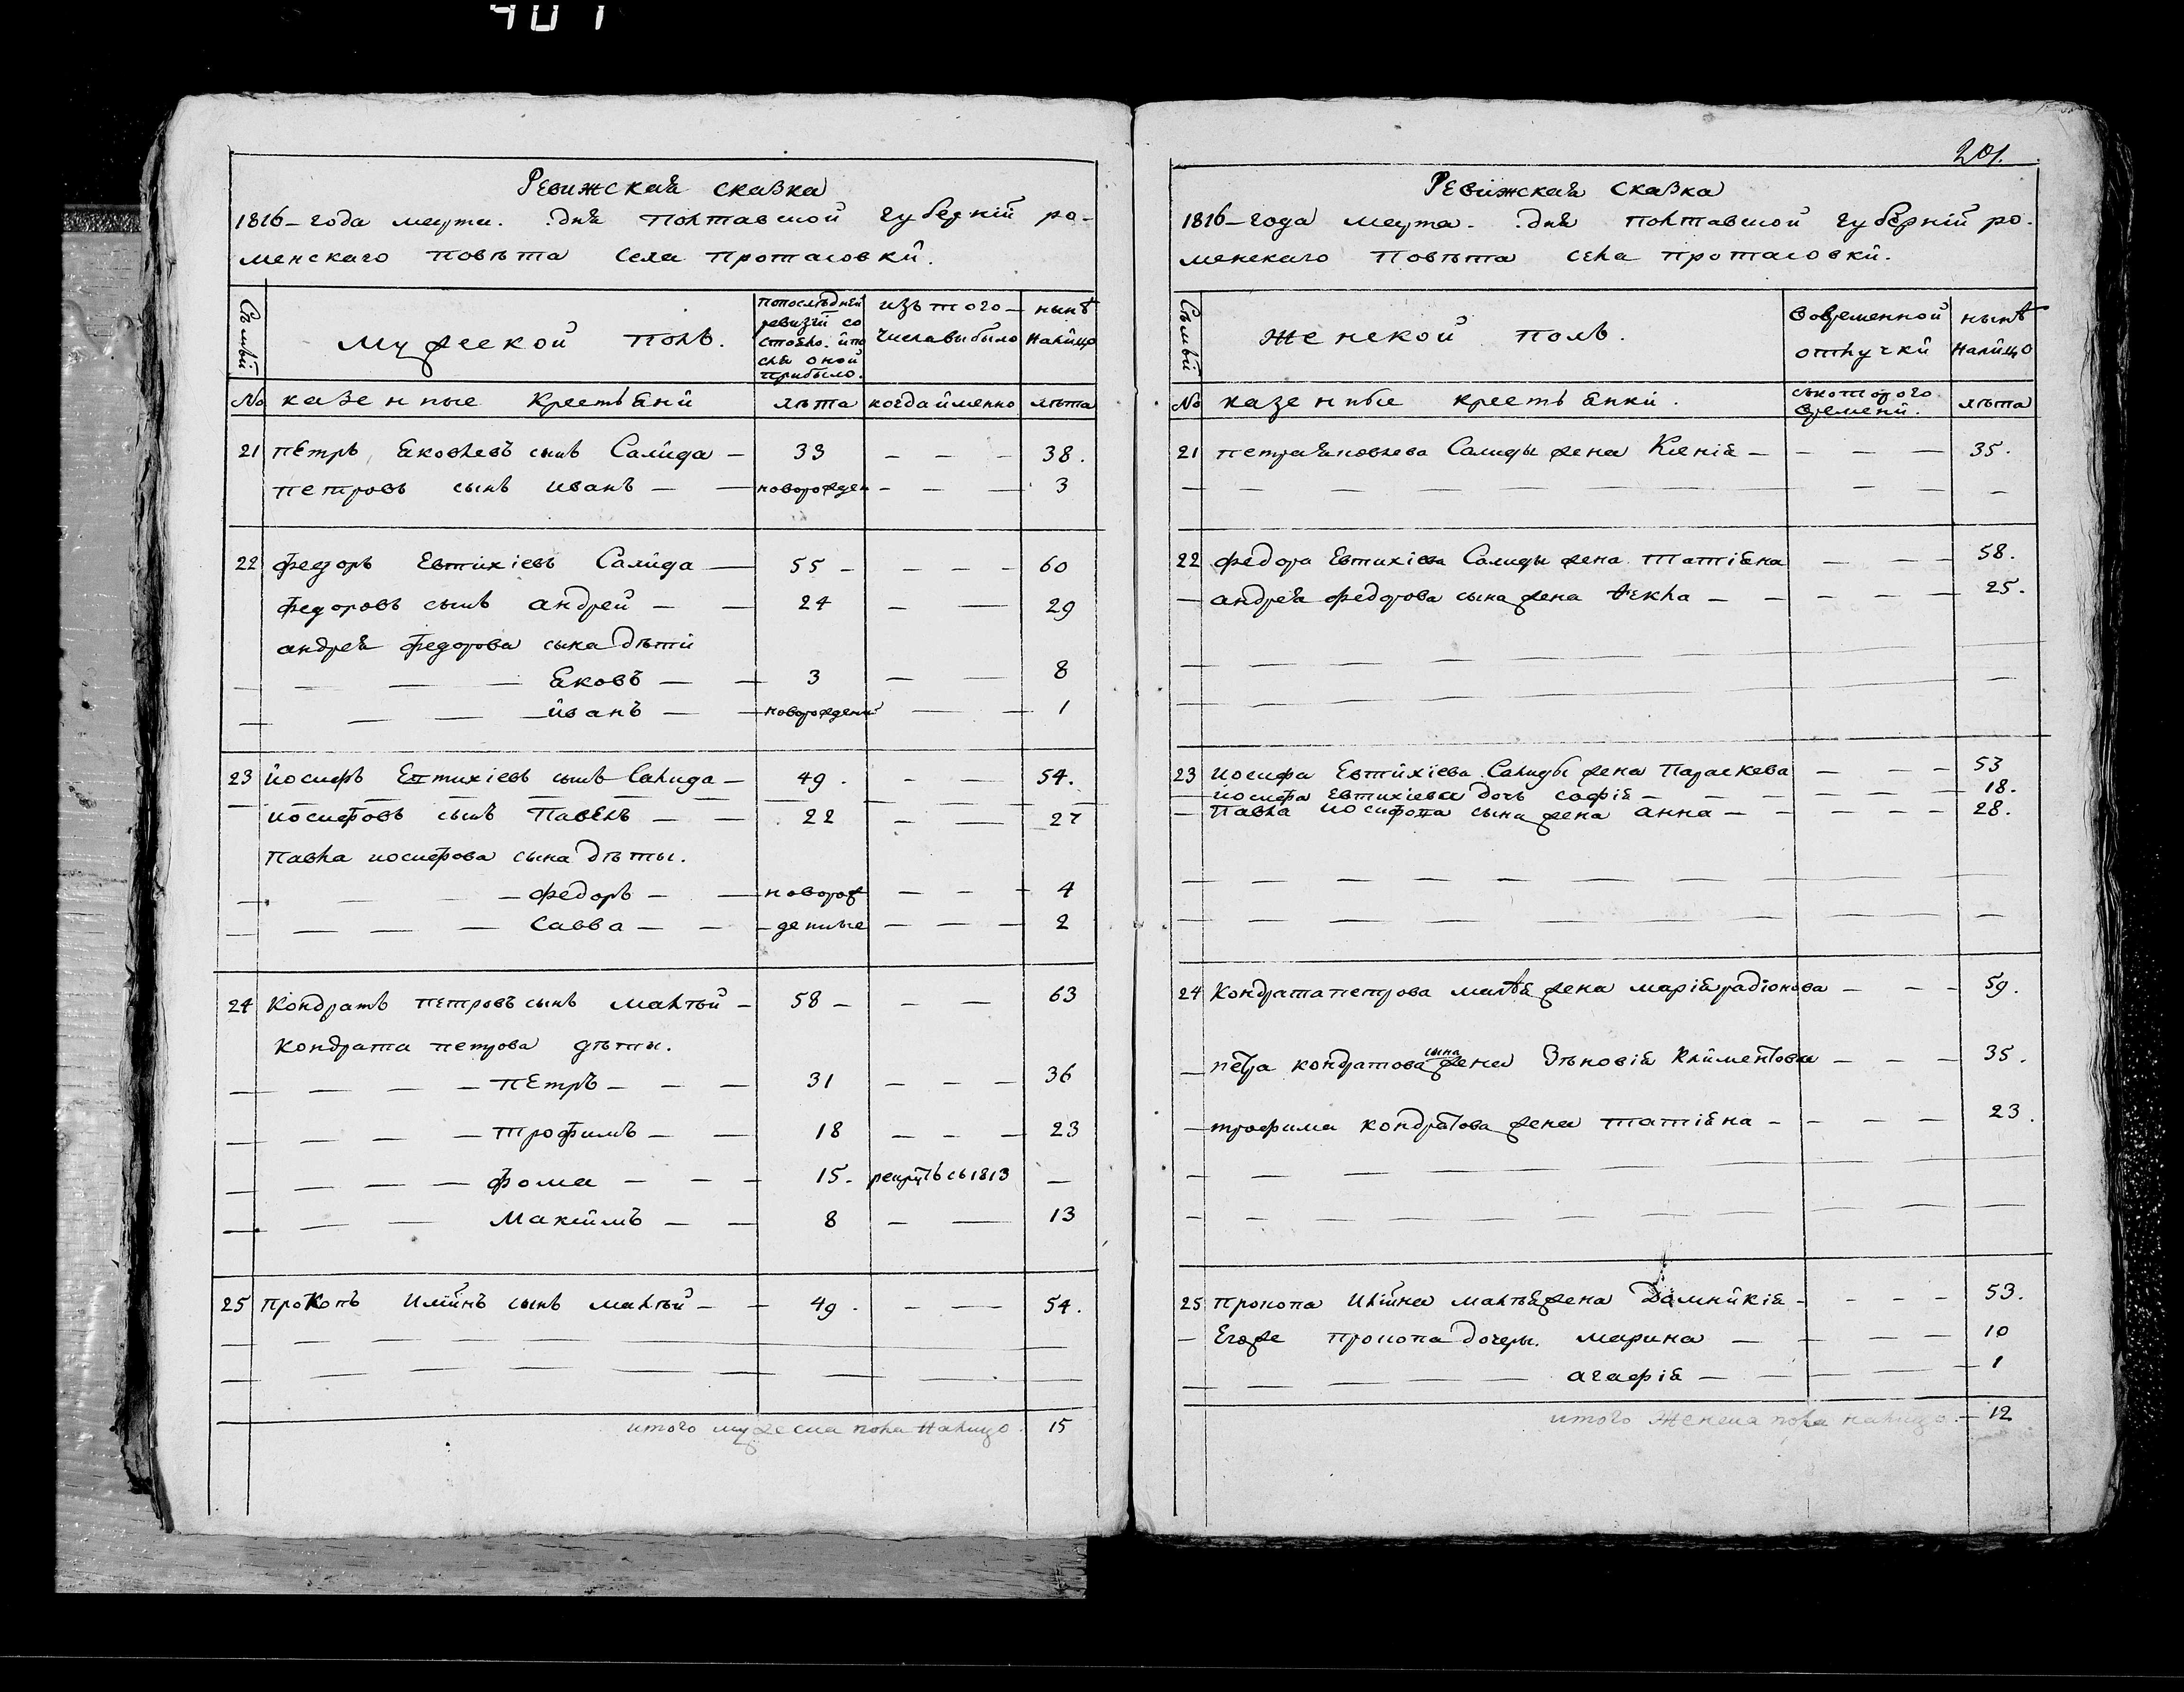 401
Ревижская сказка
1816-года марта. дня полтавской губерній ро-
менскаго повѣта села протасовки.
Съмьй
Мужеской полъ.
попослѣдней
ревизій со
стояло. ипо
слѣ оной
прибыло.
изъ того-
числавыбыло
нынѣ
налицо
№ казенные крестьяни
лѣта
когдайменно
лѣта
21 пЕтръ, Яковлевъ сынъ Салйда — 33 — — — 38.
петровъ сынъ иванъ — — новорожден — — — 3
22 федоръ Евтихіевъ Салйда — 55 — — — — 60
федоровъ сынъ андрей — — 24 — — 29
андрея федорова сына дѣтй
— — — — Яковъ — — 3 — — 8
— — — — йванъ — — новорожденй — — 1
23 йосифъ Евтихіевъ сынъ Салида — 49. — — 54.
йосифовъ сынъ Павелъ — — 22 — — 27
Павла иосифова сына дѣты.
— — — — федоръ — — новорож — — — 4
— — — — Савва — — — денные — — — 2
24 Кондратъ петровъ сынъ малтый — 58 — — — 63
Кондрата петрова дѣты.
— — — — пЕтръ — — — 31 — — — 36
— — — — трофимъ — — 18 — — — 23
— — — — фома — — — 15. рекрутъ съ1813 —
— — — Максймъ — — 8 — — 13
25 проКопъ Илййнъ сынъ малтый — — 49. — — 54.
итого мужеска пола налицо. 15
201.
РЕвижская сказка
1816-года марта. дня полтавской губерній ро-
менскаго Повѣта села протасовкй.
Съмьй
Женской полъ.
Вовременной
отлучкй
нынѣ
налйцо
№ казенные крестьянкй.
съкоторого
времени.
лѣта
21 петраЯковлева Салиды жена Ксенія — — — — 35.
22 федора Евтихіева Салиды жена татіяна — — — 58.
— андрея федорова сына жена Fекла — — — — — 25.
23 иосифа Евтйхіева Салиды жена Параскева — — — 53
— йосифа Евтихіева дочь софія — — — — — — 18.
— Павла йосифова сына жена анна — — — — — 28.
24 Кондратапетрова малтѣя жена маріярадіонова — — — 59.
сына
— петра кондратова жена Зѣновія Клйментова — — — 35.
— трофима кондратова жена татіяна — — — — 23.
25 прокопа Илйина малтѣяжена Домнйкія — — — — 53.
— Егоже прокопа дочеры. марина — — — — 10
— — — — — агафія — — — — — 1
итого женска пола налицо. — 12